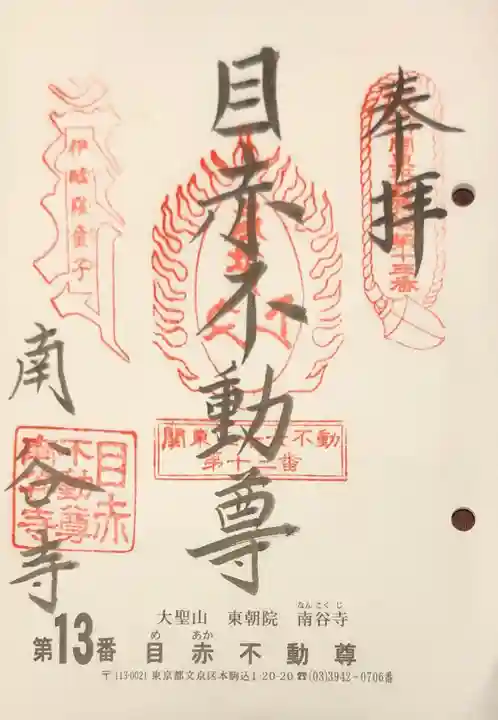 奉拝
目赤不動尊
南谷寺
伊醯羅童子
目赤
不動尊
南谷寺
第十三番
大聖山 東朝院 南谷寺
なんこくじ
第13番 目赤不動尊
め あか
〒113-0021 東京都文京区本駒込1-20-20 ☎(03)3942-0706番